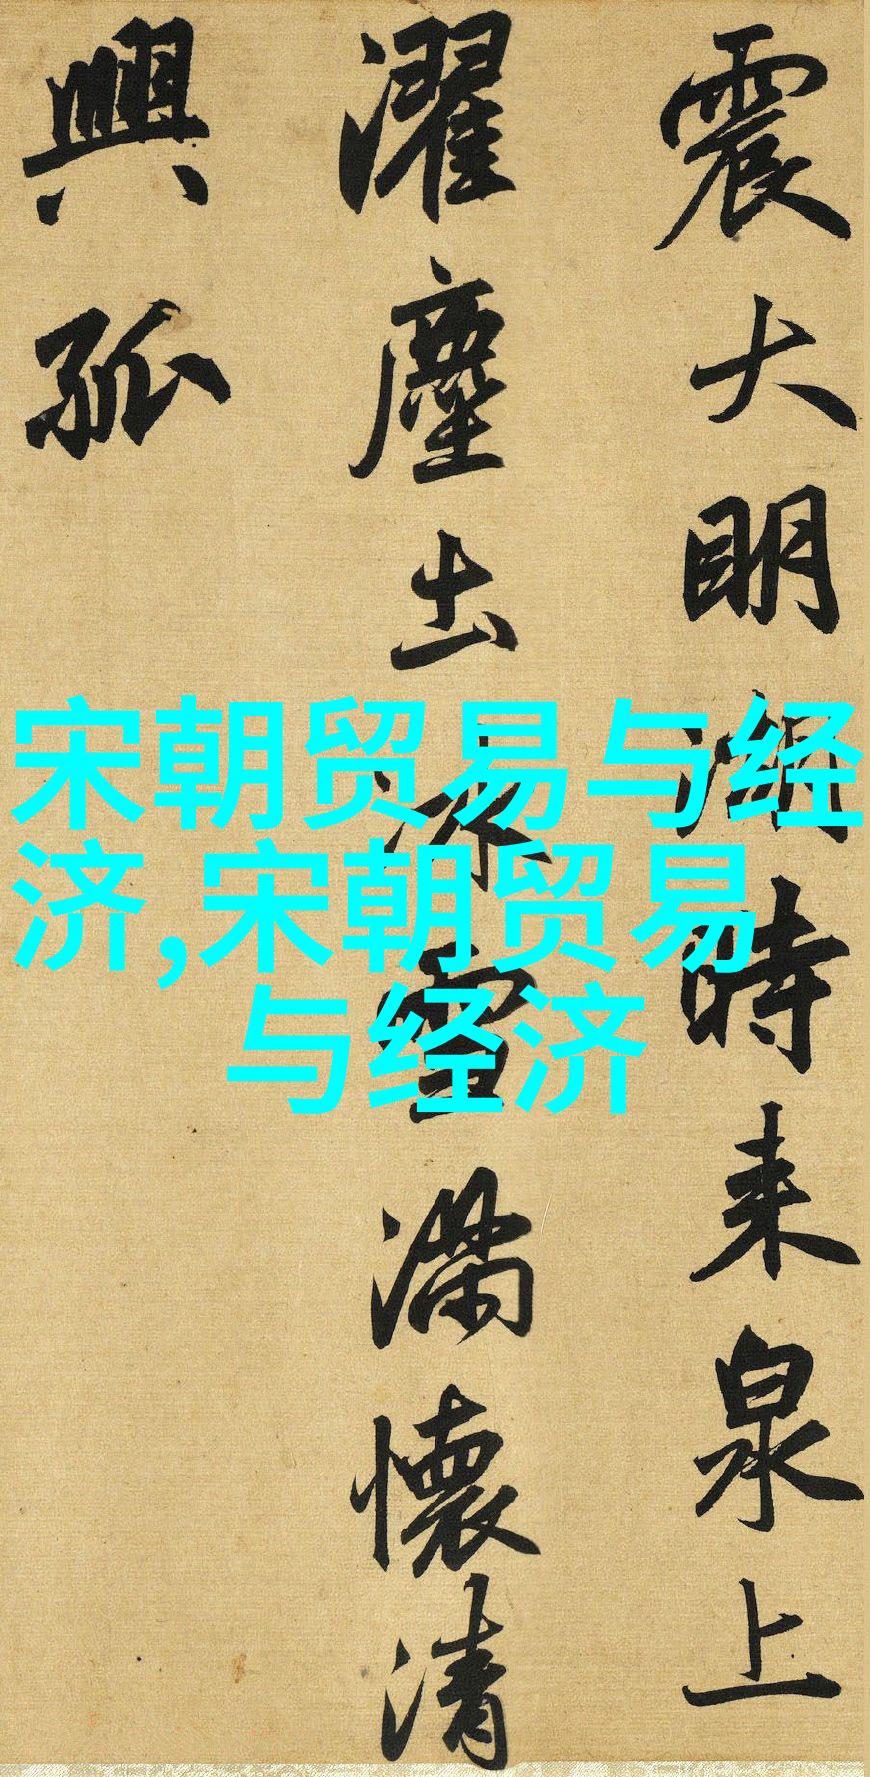 震大明湖時来泉上
濯塵土冰雪滿懷清
興孤
宋朝贸易与经
济,宋朝贸易
与经济